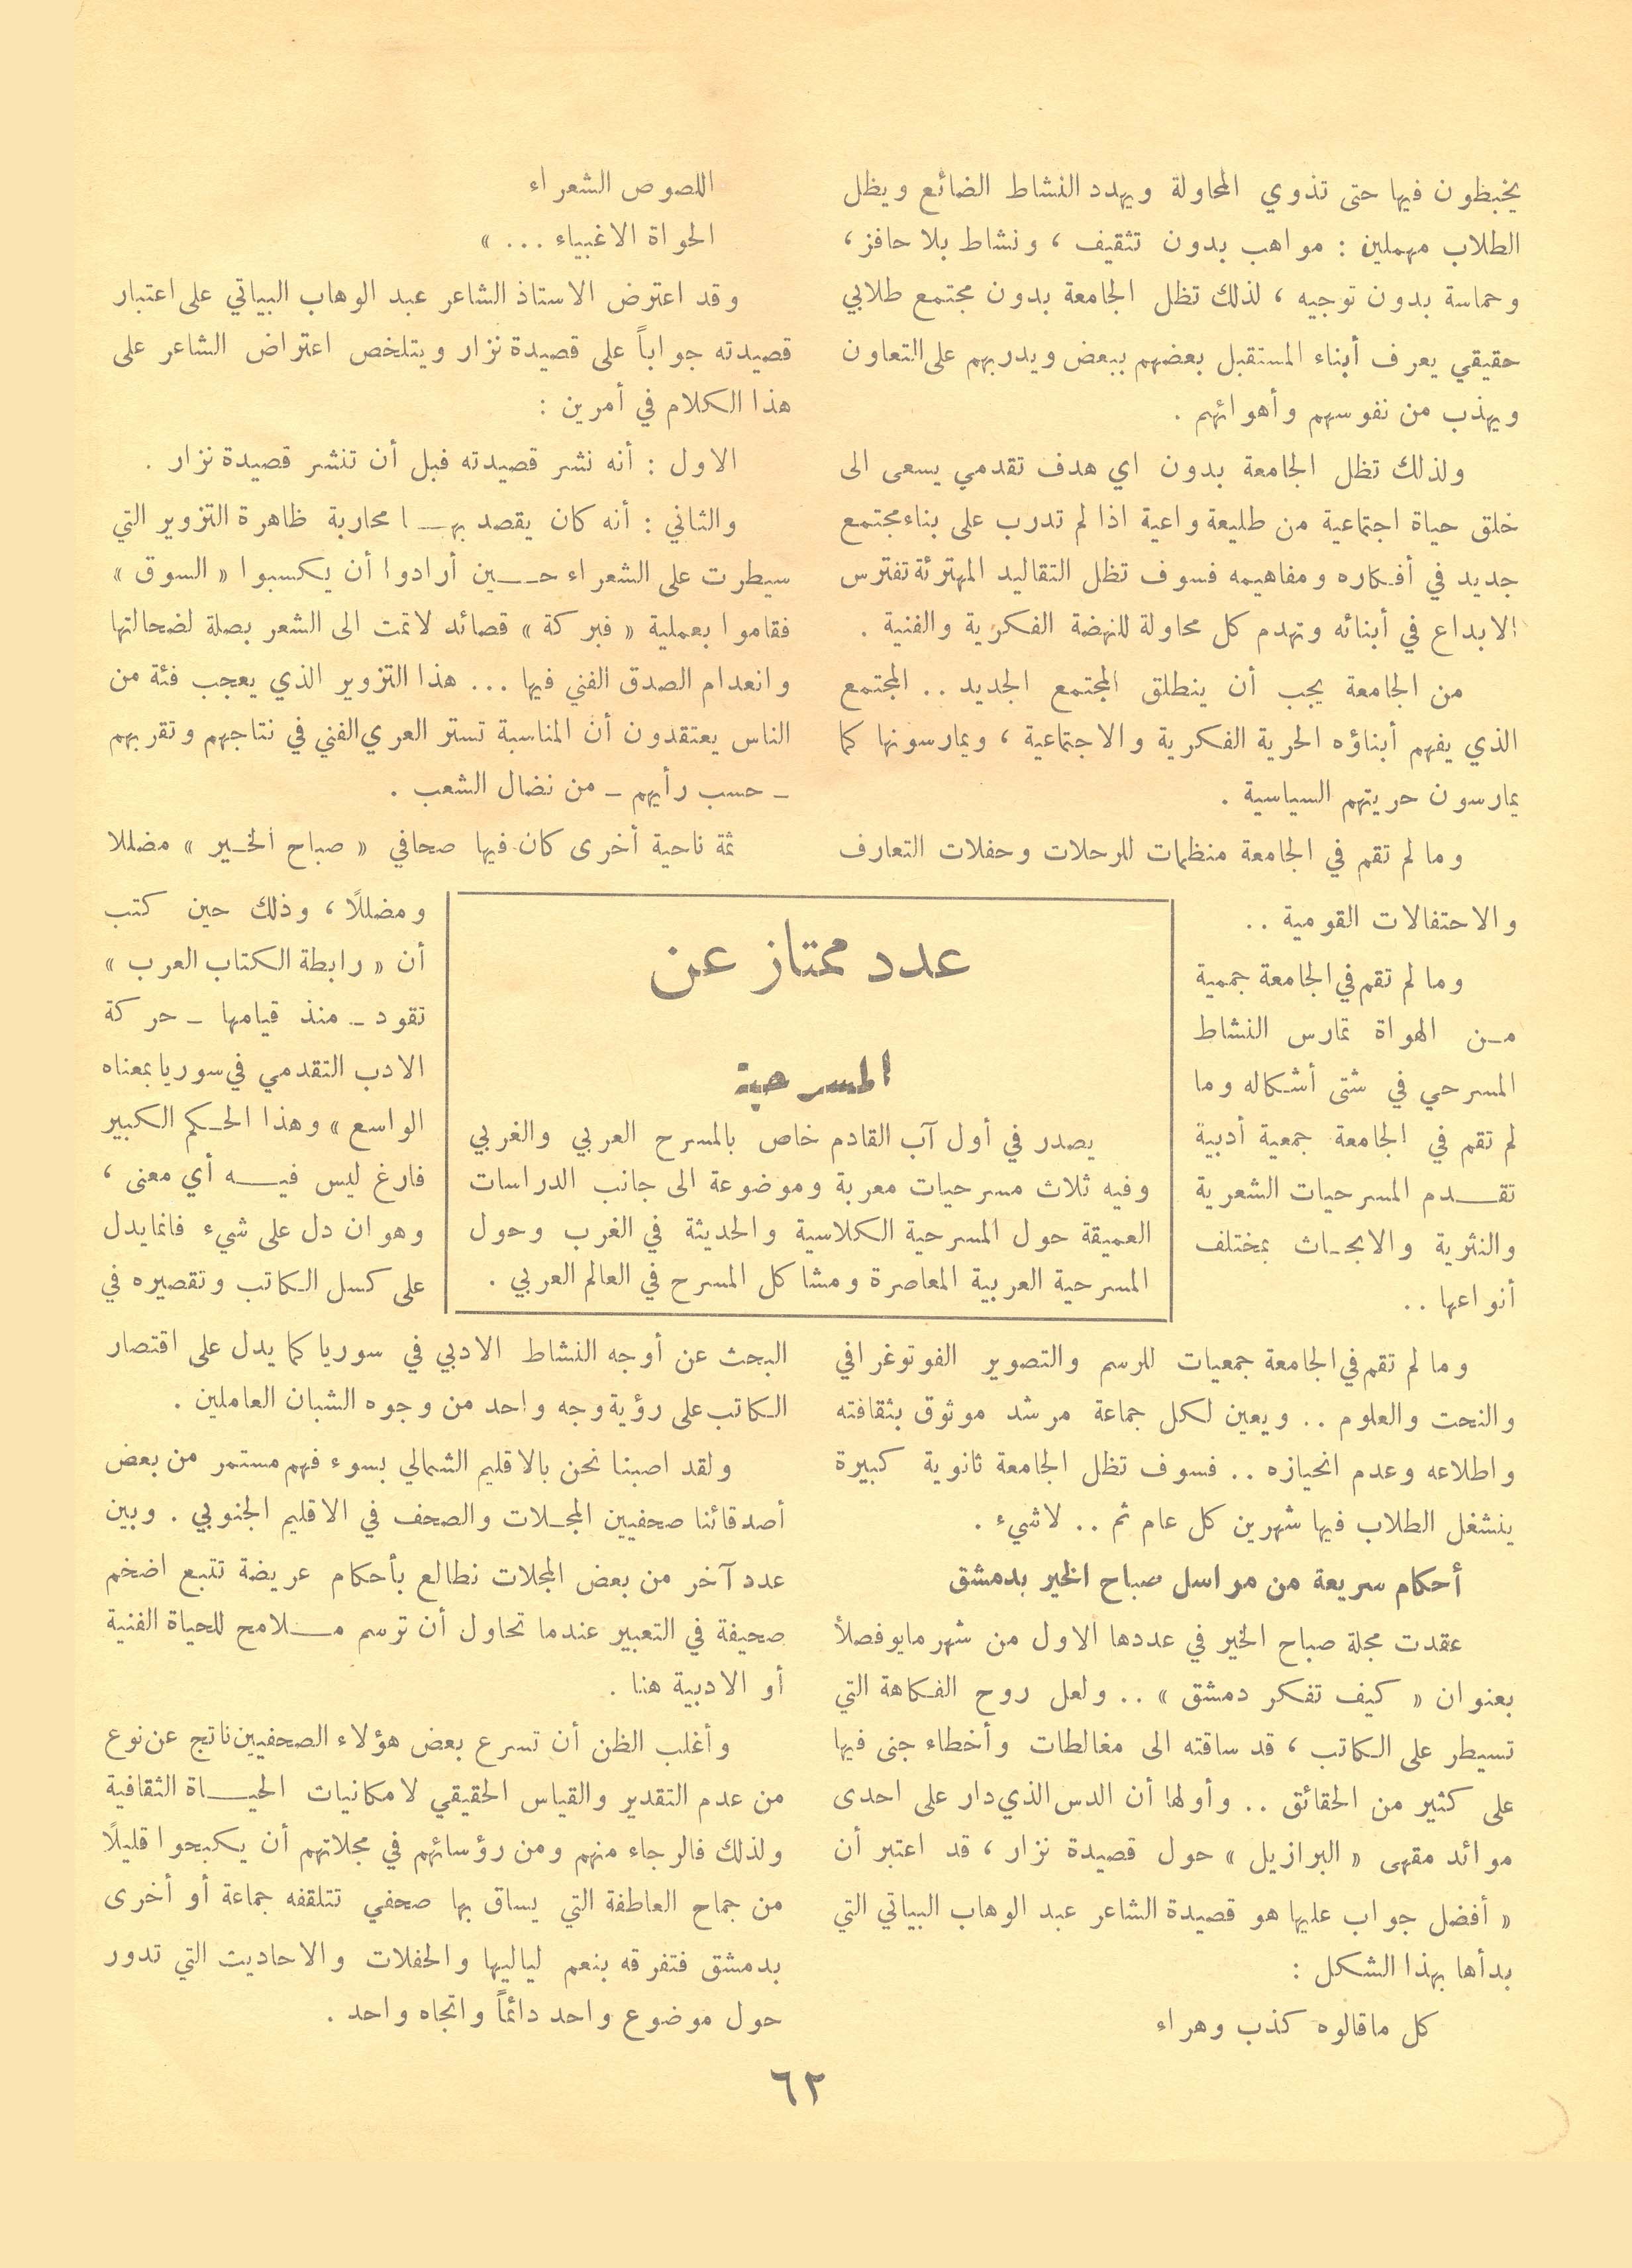 يخبطون فيها حتى تذوي المحاولة ويهدد النشاط الضائع ويظل
الطلاب مهملين : مواهب بدون تثقيف ، ونشاط بلا حافز ،
وحماسة بدون توجيه ، لذلك تظل الجامعة بدون مجتمع طلابي
حقيقي يعرف أبناء المستقبل بعضهم ببعض ويدربهم على التعاون
ويهذب من نفوسهم وأهوائهم .
ولذلك تظل الجامعة بدون اي هدف تقدمي يسعى الى
خلق حياة اجتماعية من طليعة واعية اذا لم تدرب على بناء مجتمع
جديد في أفكاره ومفاهيمه فسوف تظل التقاليد المهترئة تفترس
الابداع في أبنائه وتهدم كل محاولة للنهضة الفكرية والفنية .
من الجامعة يجب أن ينطلق المجتمع الجديد .. المجتمع
الذي يفهم أبناؤه الحرية الفكرية والاجتماعية ، ويمارسونها كما
يمارسون حريتهم السياسية .
وما لم تقم في الجامعة منظمات للرحلات وحفلات التعارف
والاحتفالات القومية ..
وما لم تقم في الجامعة جمعية
مـن الهواة تمارس النشاط
المسرحي في شتى أشكاله وما
لم تقم في الجامعة جمعية أدبية
تقـــدم المسرحيات الشعرية
والنثرية والابحـاث بمختلف
أنواعها ..
وما لم تقم في الجامعة جمعيات للرسم والتصوير الفوتوغرافي
والنحت والعلوم .. ويعين لكل جماعة مرشد موثوق بثقافته
واطلاعه وعدم انحيازه .. فسوف تظل الجامعة ثانوية كبيرة
ينشغل الطلاب فيها شهرين كل عام ثم .. لاشيء .
أحكام سريعة من مراسل صباح الخير بدمشق
عقدت مجلة صباح الخير في عددها الاول من شهر مايو فصلاً
بعنوان « كيف تفكر دمشق » .. ولعل روح الفكاهة التي
تسيطر على الكاتب ، قد ساقته الى مغالطات وأخطاء جنى فيها
على كثير من الحقائق .. وأولها أن الدس الذي دار على احدى
موائد مقهى « البرازيل » حول قصيدة نزار ، قد اعتبر أن
« أفضل جواب عليها هو قصيدة الشاعر عبد الوهاب البياتي التي
بدأها بهذا الشكل :
كل ماقالوه كذب وهراء
اللصوص الشعراء
الحواة الاغبياء ... »
وقد اعترض الاستاذ الشاعر عبد الوهاب البياتي على اعتبار
قصيدته جواباً على قصيدة نزار ويتلخص اعتراض الشاعر على
هذا الكلام في أمرين :
الاول : أنه نشر قصيدته قبل أن تنشر قصيدة نزار .
والثاني : أنه كان يقصد بهــا محاربة ظاهرة التزوير التي
سيطرت على الشعراء حـــين أرادوا أن يكسبوا « السوق »
فقاموا بعملية « فبركة » قصائد لاتمت الى الشعر بصلة لضحالتها
وانعدام الصدق الفني فيها ... هذا التزوير الذي يعجب فئة من
الناس يعتقدون أن المناسبة تستر العري الفني في نتاجهم وتقربهم
ـ حسب رأيهم ـ من نضال الشعب .
ثمة ناحية أخرى كان فيها صحافي « صباح الخـير » مضللا
ومضللًا ، وذلك حين كتب
أن « رابطة الكتاب العرب »
تقود ـ منذ قيامها ـ حركة
الادب التقدمي في سوريا بمعناه
الواسع » وهذا الحـكم الكبير
فارغ ليس فيـــه أي معنى ،
وهو ان دل على شيء فانما يدل
على كسل الكاتب وتقصيره في
البحث عن أوجه النشاط الادبي في سوريا كما يدل على اقتصار
الكاتب على رؤية وجه واحد من وجوه الشبان العاملين .
ولقد اصبنا نحن بالاقليم الشمالي بسوء فهم مستمر من بعض
أصدقائنا صحفيين المجـلات والصحف في الاقليم الجنوبي . وبين
عدد آخر من بعض المجلات نطالع بأحكام عريضة تتبع اضخم
صحيفة في التعبير عندما تحاول أن ترسم مـــلامح للحياة الفنية
أو الادبية هنا .
وأغلب الظن أن تسرع بعض هؤلاء الصحفيين ناتج عن نوع
من عدم التقدير والقياس الحقيقي لامكانيات الحيـــاة الثقافية
ولذلك فالرجاء منهم ومن رؤسائهم في مجلاتهم أن يكبحوا قليلًا
من جماح العاطفة التي يساق بها صحفي تتلقفه جماعة أو أخرى
بدمشق فتفرقه بنعم لياليها والحفلات والاحاديث التي تدور
حول موضوع واحد دائماً واتجاه واحد .
عدد ممتاز عن
المسرحية
يصدر في أول آب القادم خاص بالمسرح العربي والغربي
وفيه ثلاث مسرحيات معربة وموضوعة الى جانب الدراسات
العميقة حول المسرحية الكلاسية والحديثة في الغرب وحول
المسرحية العربية المعاصرة ومشاكل المسرح في العالم العربي .
٦٢